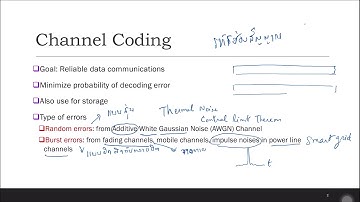 Channel Coding
Goal: Reliable data communications
Minimize probability of decoding error
Also use for storage
Type of errors
Thermal Noise
Central Limit Theorem
Random errors: from Additive White Gaussian Noise (AWGN) Channel
Burst errors: from fading channels, mobile channels, impulse noises in power line
channels
Smart grid
t